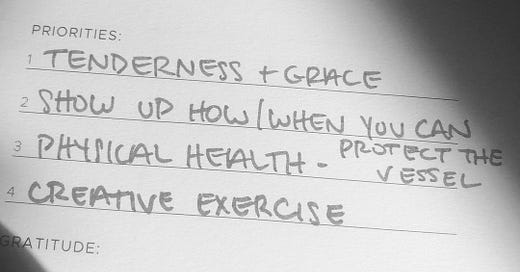 PRIORITIES:
1 TENDERNESS + GRACE
2 SHOW UP HOW/WHEN YOU CAN
3 PHYSICAL HEALTH - PROTECT THE
VESSEL
4 CREATIVE EXERCISE
GRATITUDE: